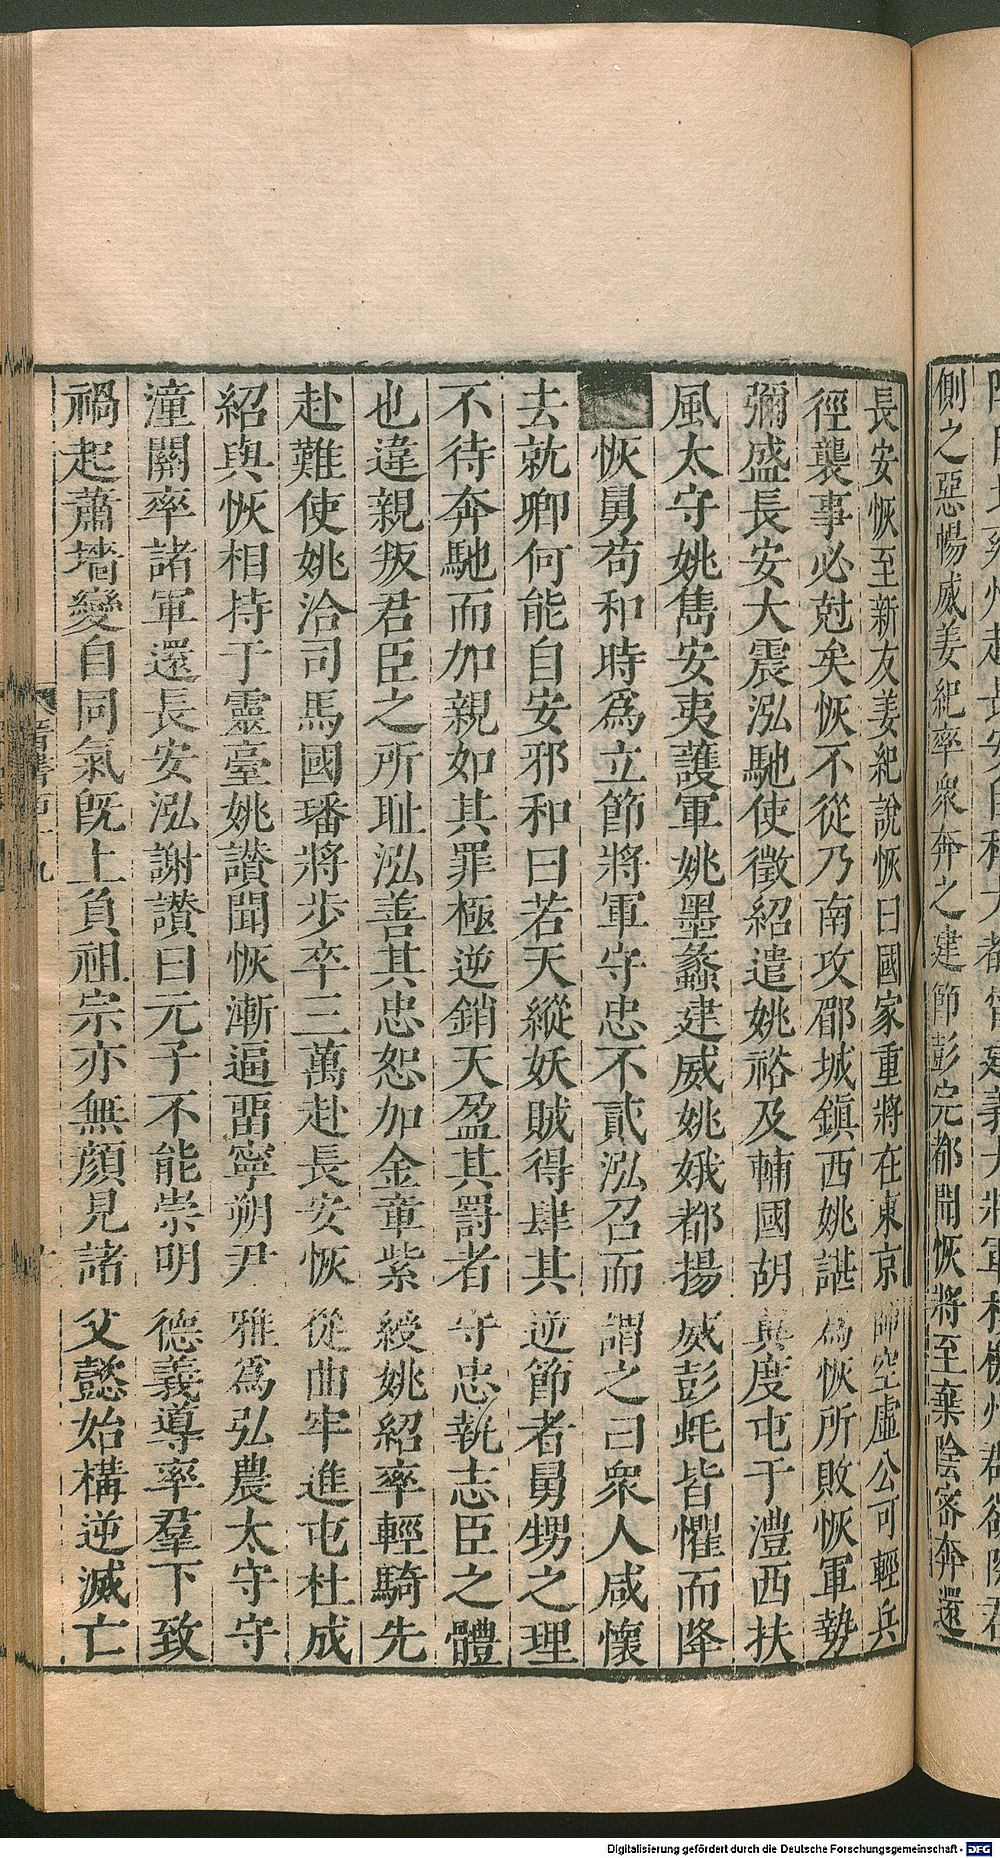 側之惡暢威姜紀率衆奔之建節彭完都聞恢將至棄陰密奔還
長安恢至新友姜紀說恢曰國家重將在東京師空虛公可輕兵
徑襲事必尅矣恢不從乃南攻郿城鎭西姚諶爲恢所敗恢軍勢
彌盛長安大震泓馳使徵紹遣姚裕及輔國胡翼度屯于澧西扶
風太守姚雋安夷護軍姚墨蠡建威姚娥都揚威彭蚝皆懼而降
恢舅苟和時爲立節將軍守忠不貳泓召而謂之曰衆人咸懷
去就卿何能自安邪和曰若天縱妖賊得肆其逆節者舅甥之理
不待奔馳而加親如其罪極逆銷天盈其罰者守忠執志臣之體
也違親叛君臣之所耻泓善其忠恕加金章紫綬姚紹率輕騎先
赴難使姚洽司馬國璠將步卒三萬赴長安恢從曲牢進屯杜成
紹與恢相持于靈臺姚讃聞恢漸逼畱寧朔尹雅爲弘農太守守
潼關率諸軍還長安泓謝讃曰元子不能崇明德義導率羣下致
禍起蕭墻變自同氣旣上負祖宗亦無顏見諸父懿始構逆滅亡
晋書百十九
Digitalisierung gefördert durch die Deutsche Forschungsgemeinschaft - DFG